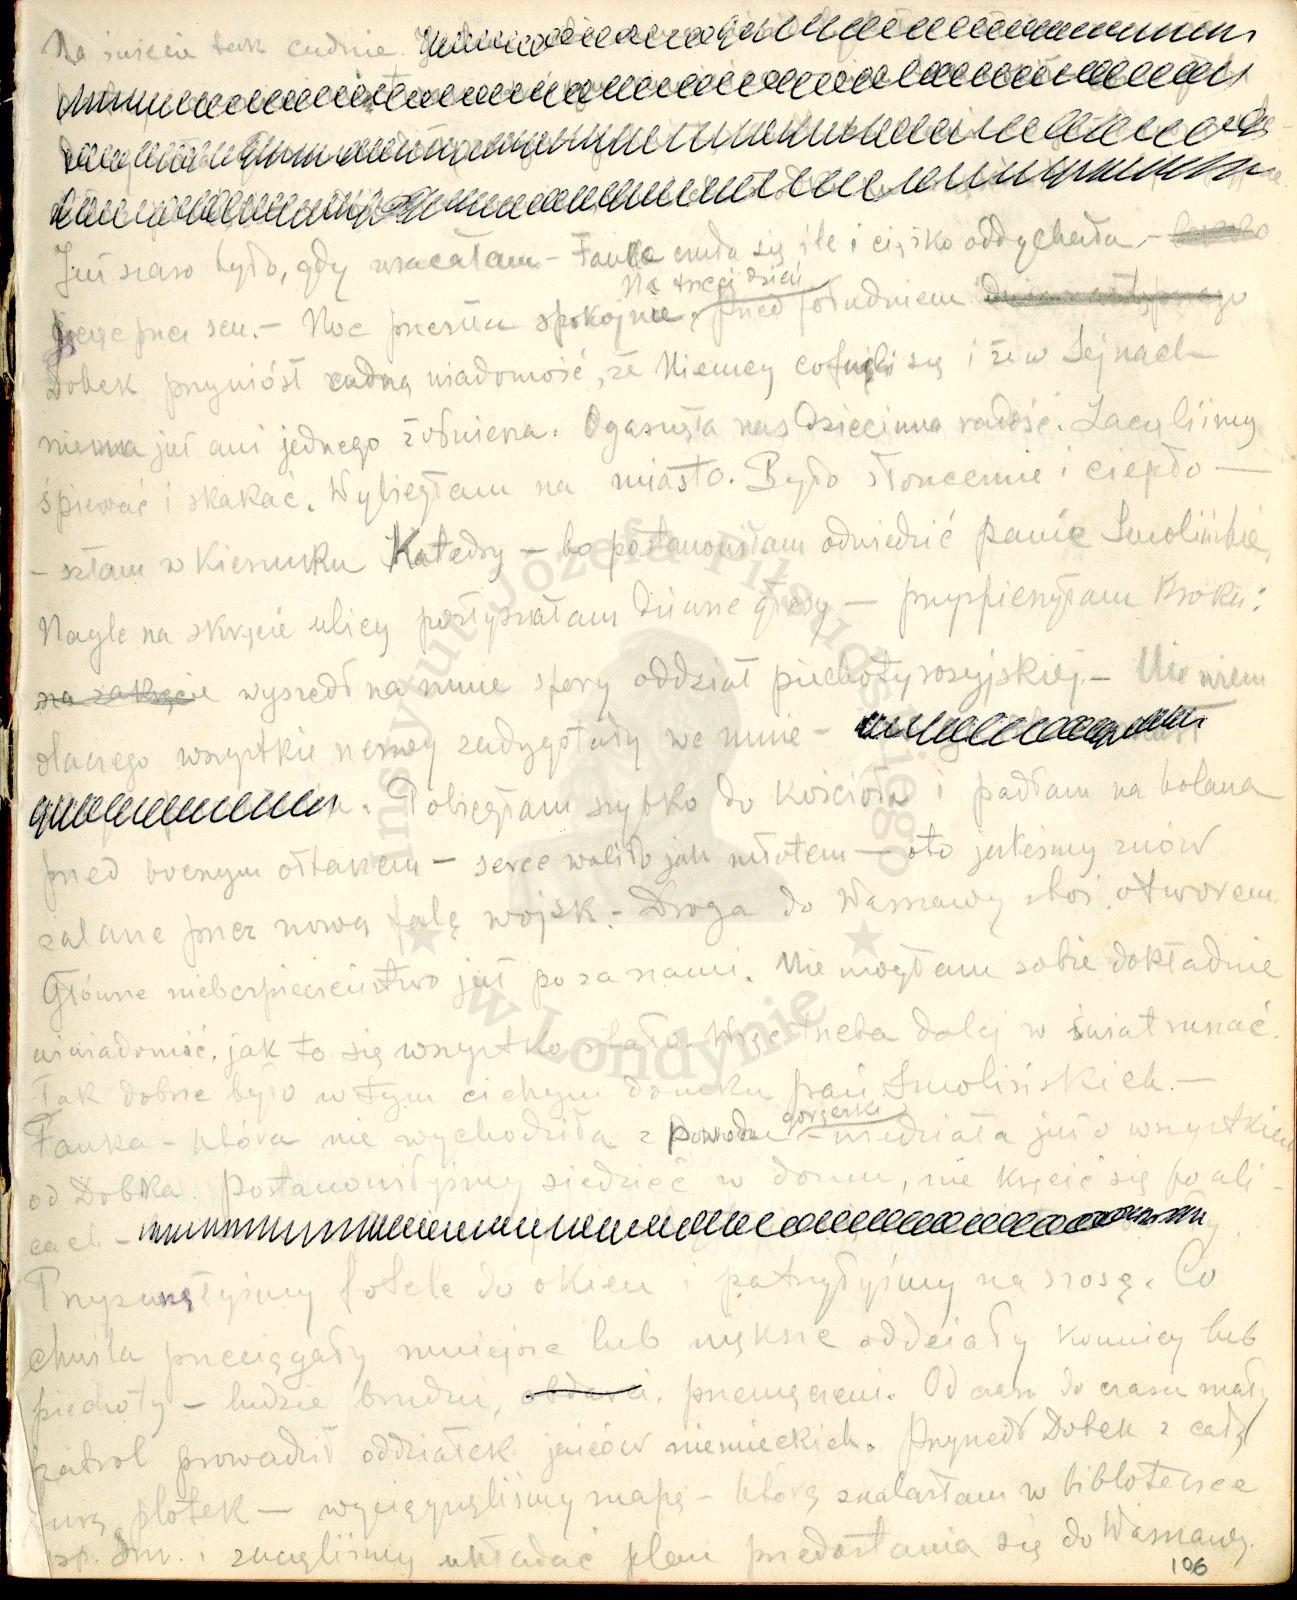 Na świecie tak cudnie.
Już szaro było, gdy wracałam – Fanka czuła się źle i ciężko oddychała, –
przez sen. – Noc przeszła spokojnie, Na trzeci dzień przed południem
Dobek przyniósł cudną wiadomość, że Niemcy cofnęli się i że w Sejnach
niema już ani jednego żołnierza. Ogarnęła nas dziecinna radość. Zaczęliśmy
śpiewać i skakać. Wybiegłam na miasto. Było słonecznie i ciepło –
– szłam w kierunku Katedry – bo postanowiłam odwiedzić panie Smolińskie,
Nagle na skręcie ulicy posłyszałam dziwne głosy – przyspieszyłam kroku:
na zakręcie wyszedł na mnie spory oddział piechoty rosyjskiej. – Nie wiem
dlaczego wszystkie nerwy zadrgały we mnie –
Pobiegłam szybko do kościoła i padłam na kolana
przed bocznym ołtarzem – serce waliło jak młotem – oto jesteśmy znów
zalane przez nową falę wojsk. – Droga do Warszawy stoi otworem
Główne niebezpieczeństwo już poza nami. Nie mogłam sobie dokładnie
uświadomić, jak to się wszystko stało. Więc trzeba dalej w świat ruszać.
Tak dobrze było w tym cichym domku pań Smolińskich. –
Fanka – która nie wychodziła z powodu gorączki – wiedziała już o wszystkiem
od Dobka. Postanowiłyśmy siedzieć w domu, nie kręcić się po uli-
cach –
Przysunęłyśmy fotele do okien i patrzyłyśmy na szosę. Co
chwila przeciągały mniejsze lub większe oddziały konnicy lub
piechoty – ludzie brudni, obdarci, przemęczeni. Od czasu do czasu mały
patrol prowadził oddziałek jeńców niemieckich. Przyszedł Dobek z całą
furą plotek – wyciągnęliśmy mapę – którą znalazłam w bibloteczce
pp. Sm. i zaczęliśmy układać plan przedostania się do Warszawy.
106
Instytut Józefa Piłsudskiego
w Londynie